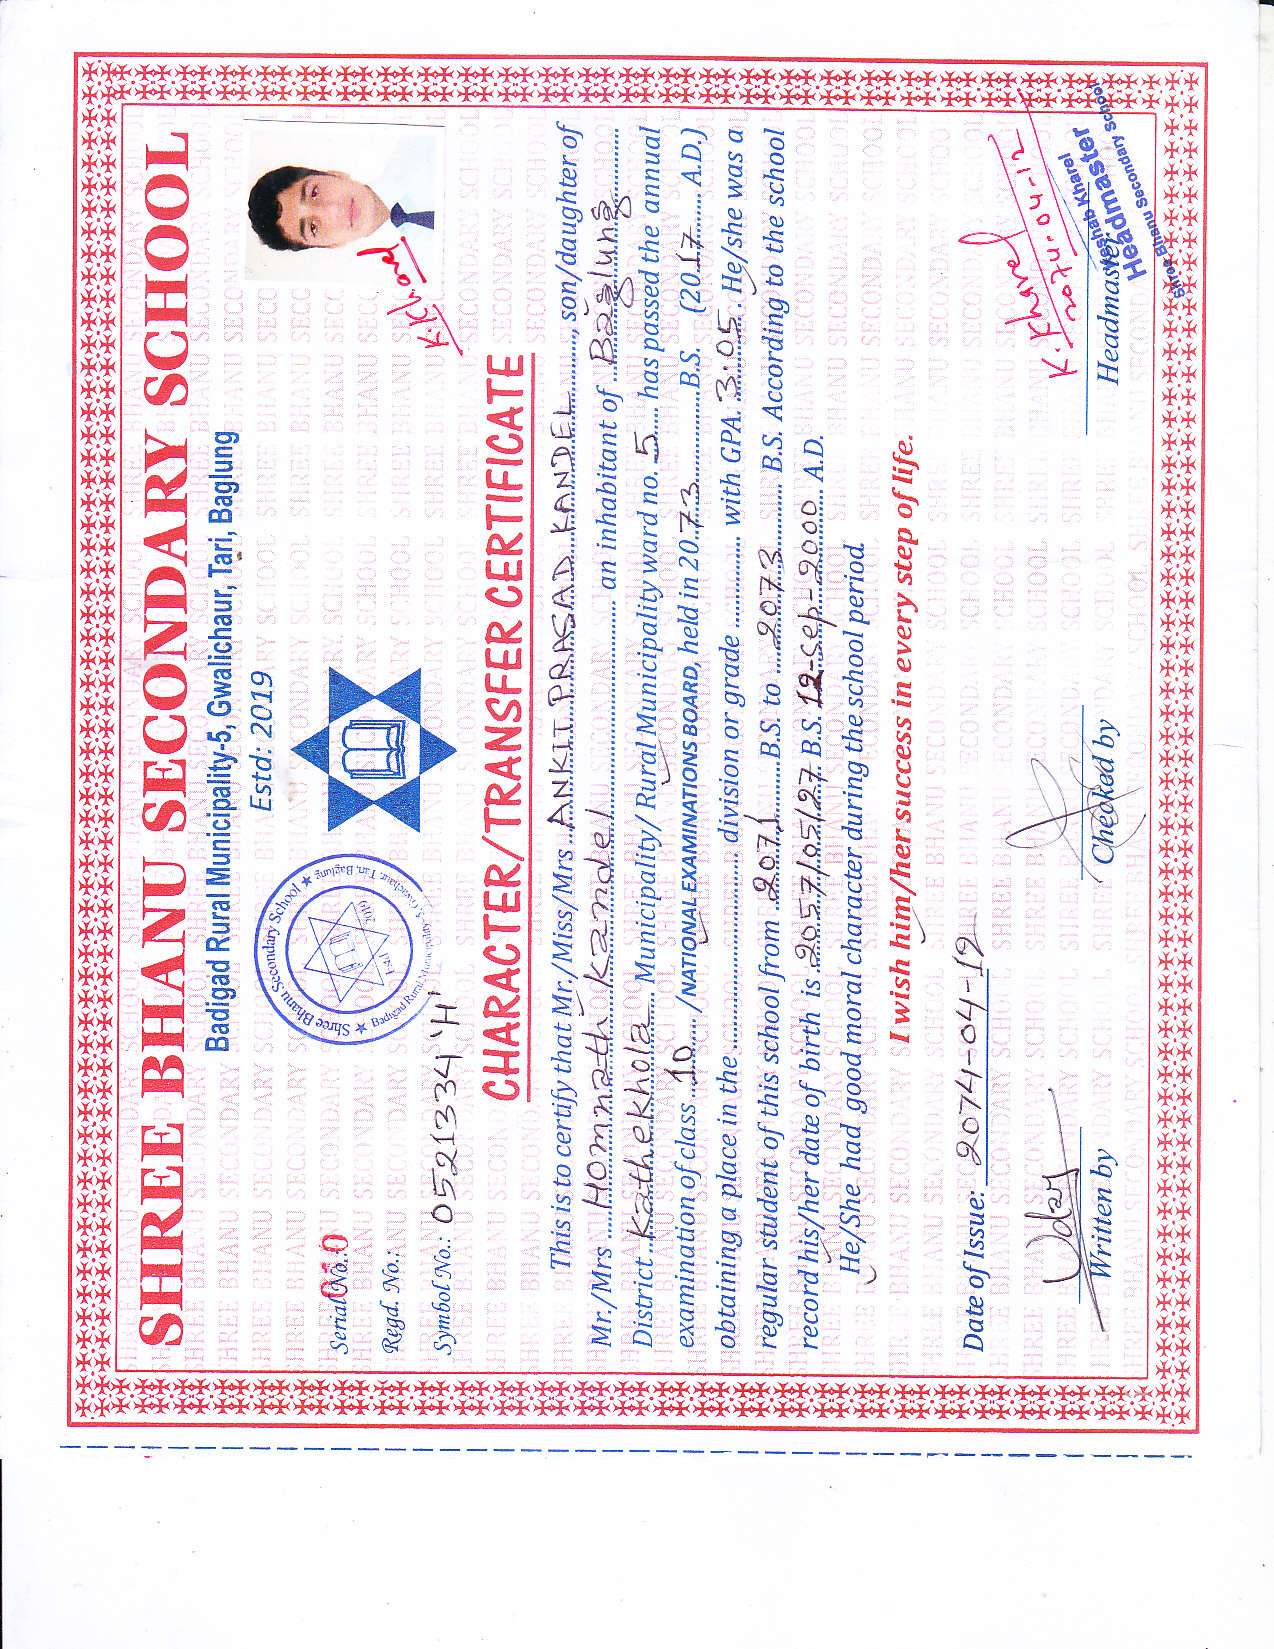 SHREE BHANU SECONDARY SCHOOL
Badigad Rural Municipality-5, Gwalichaur, Tari, Baglung
Estd: 2019
Shree Bhanu Secondary School
Badigad Rural Municipality-5, Gwalichaur, Tari, Baglung
Estd. 2019
Serial No.: 010
Regd. No.:
Symbol No.: 0521334 'H'
K. Kharel
CHARACTER/TRANSFER CERTIFICATE
This is to certify that Mr./Miss/Mrs ANKIT PRASAD KANDEL, son/daughter of
Mr./Mrs Homnath Kandel an inhabitant of Baglung
District Kathekhola Municipality/ Rural Municipality ward no. 5 has passed the annual
examination of class 10 /NATIONAL EXAMINATIONS BOARD, held in 2073 B.S. (2017 A.D.)
obtaining a place in the division or grade with GPA. 3.05. He/she was a
regular student of this school from 2071 B.S. to 2073 B.S. According to the school
record his/her date of birth is 2057/05/27 B.S. 12-sep-2000 A.D.
He/She had good moral character during the school period.
I wish him/her success in every step of life.
Date of Issue: 2074-04-12
Uday
Written by
Checked by
K. Kharel
2074-04-12
Headmaster
Keshab Kharel
Headmaster
Shree Bhanu Secondary School